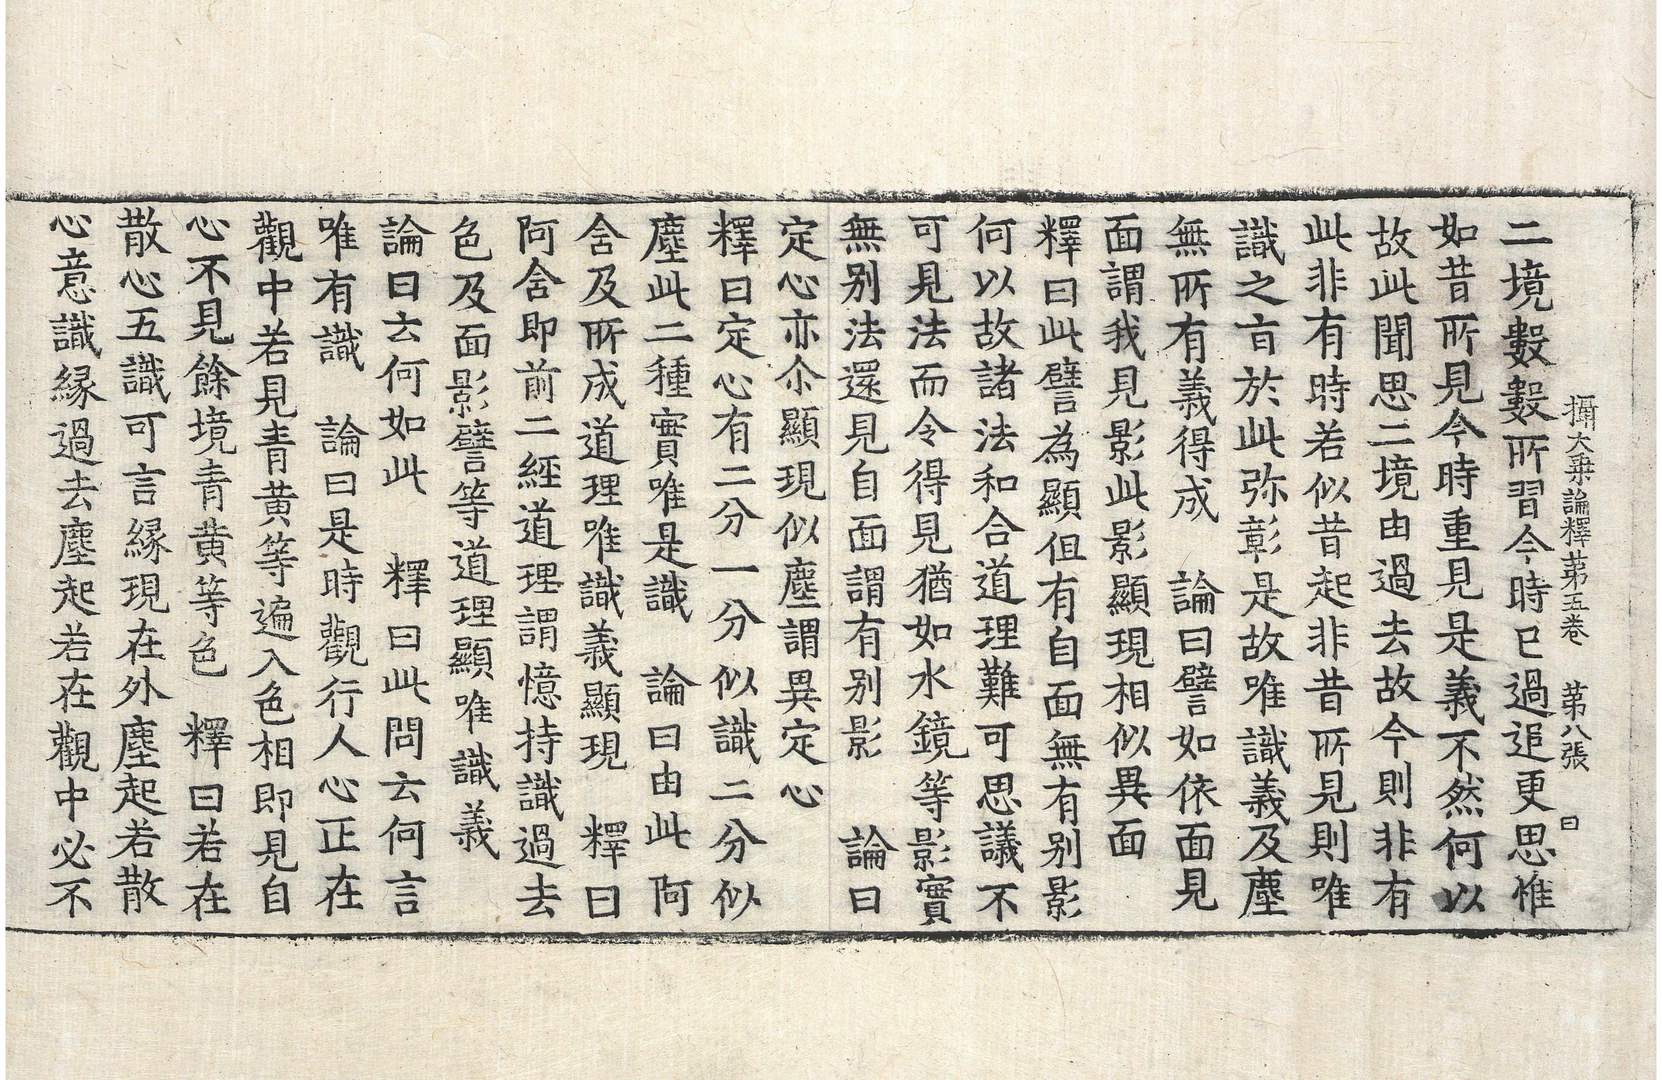 攝大乗論釋苐五卷　苐八張　曰
二境數數所習今時已過追更思惟
如昔所見今時重見是義不然何以
故此聞思二境由過去故今則非有
此非有時若似昔起非昔所見則唯
識之旨於此弥彰是故唯識義及塵
無所有義得成　論曰譬如依面見
面謂我見影此影顯現相似異面
釋曰此譬為顯但有自面無有别影
何以故諸法和合道理難可思議不
可見法而令得見猶如水鏡等影實
無别法還見自面謂有别影　論曰
定心亦尒顯現似塵謂異定心
釋曰定心有二分一分似識二分似
塵此二種實唯是識　論曰由此阿
含及所成道理唯識義顯現　釋曰
阿含即前二經道理謂憶持識過去
色及面影譬等道理顯唯識義
論曰云何如此　釋曰此問云何言
唯有識　論曰是時觀行人心正在
觀中若見青黄等遍入色相即見自
心不見餘境青黄等色　釋曰若在
散心五識可言縁現在外塵起若散
心意識縁過去塵起若在觀中必不